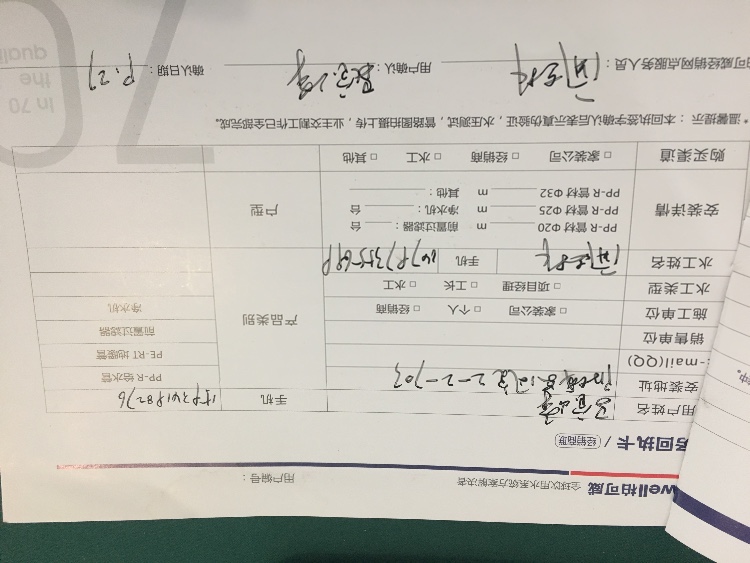 well柏可威 全球饮用水系统方案解决者 用户编号：
回执卡 / 经销商版
用户姓名 手机
安装地址 2-2-703 PP-R 给水管
-mail(QQ) PE-RT 地暖管
销售单位 产品类别 前置过滤器
施工单位 □ 家装公司 □ 个人 □ 经销商 净水机
水工类型 □ 项目经理 □ 工长 □ 水工
水工姓名 手机
安装详情 PP-R 管材 Φ20 m 前置过滤器： 台 户型
PP-R 管材 Φ25 m 净水机： 台
PP-R 管材 Φ32 m 其他：
购买渠道 □ 家装公司 □ 经销商 □ 水工 □ 其他
*温馨提示：本回执签字确认后表示真伪验证，水压测试，管路图拍摄上传，业主交割工作已全部完成。
可威经销网点服务人员： 用户确认： 确认日期： 8.27
In 70
the
quali
70